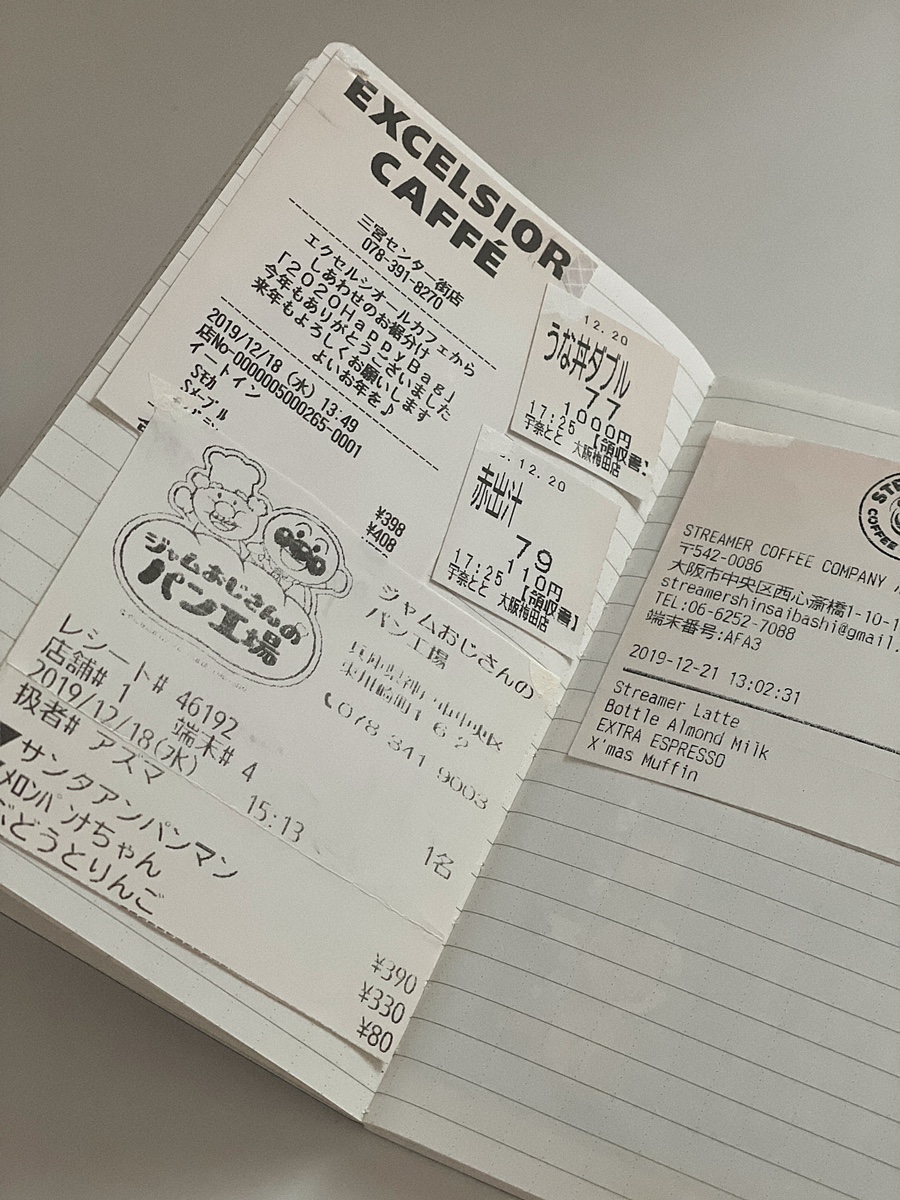 EXCELSIOR
CAFFÉ
三宮センター街店
078-391-8270
エクセルシオールカフェから
しあわせのお裾分け
「2020HappyBag」
今年もありがとうございました
来年もよろしくお願いします
よいお年を♪
2019/12/18(水) 13:49
店No-0000005000265-0001
イートイン
Sモカ
Sメープル
¥398
¥408
12.20
うな丼ダブル
77
1000円
17:25 【領収書】
宇奈とと 大阪梅田店
12.20
赤出汁
79
110円
17:25 【領収書】
宇奈とと 大阪梅田店
ジャムおじさんの
パン工場
ジャムおじさんの
パン工場
078 341 9003
レシート# 46192
店舗# 1 端末# 4
2019/12/18(水) 15:13
扱者# アズマ
1名
サンタアンパンマン
メロンパンナちゃん
ぶどうとりんご
¥390
¥330
¥80
COFFEE
STREAMER COFFEE COMPANY
〒542-0086
大阪市中央区西心斎橋1-10-1
streamershinsaibashi@gmail.
TEL:06-6252-7088
端末番号:AFA3
2019-12-21 13:02:31
Streamer Latte
Bottle Almond Milk
EXTRA ESPRESSO
X'mas Muffin